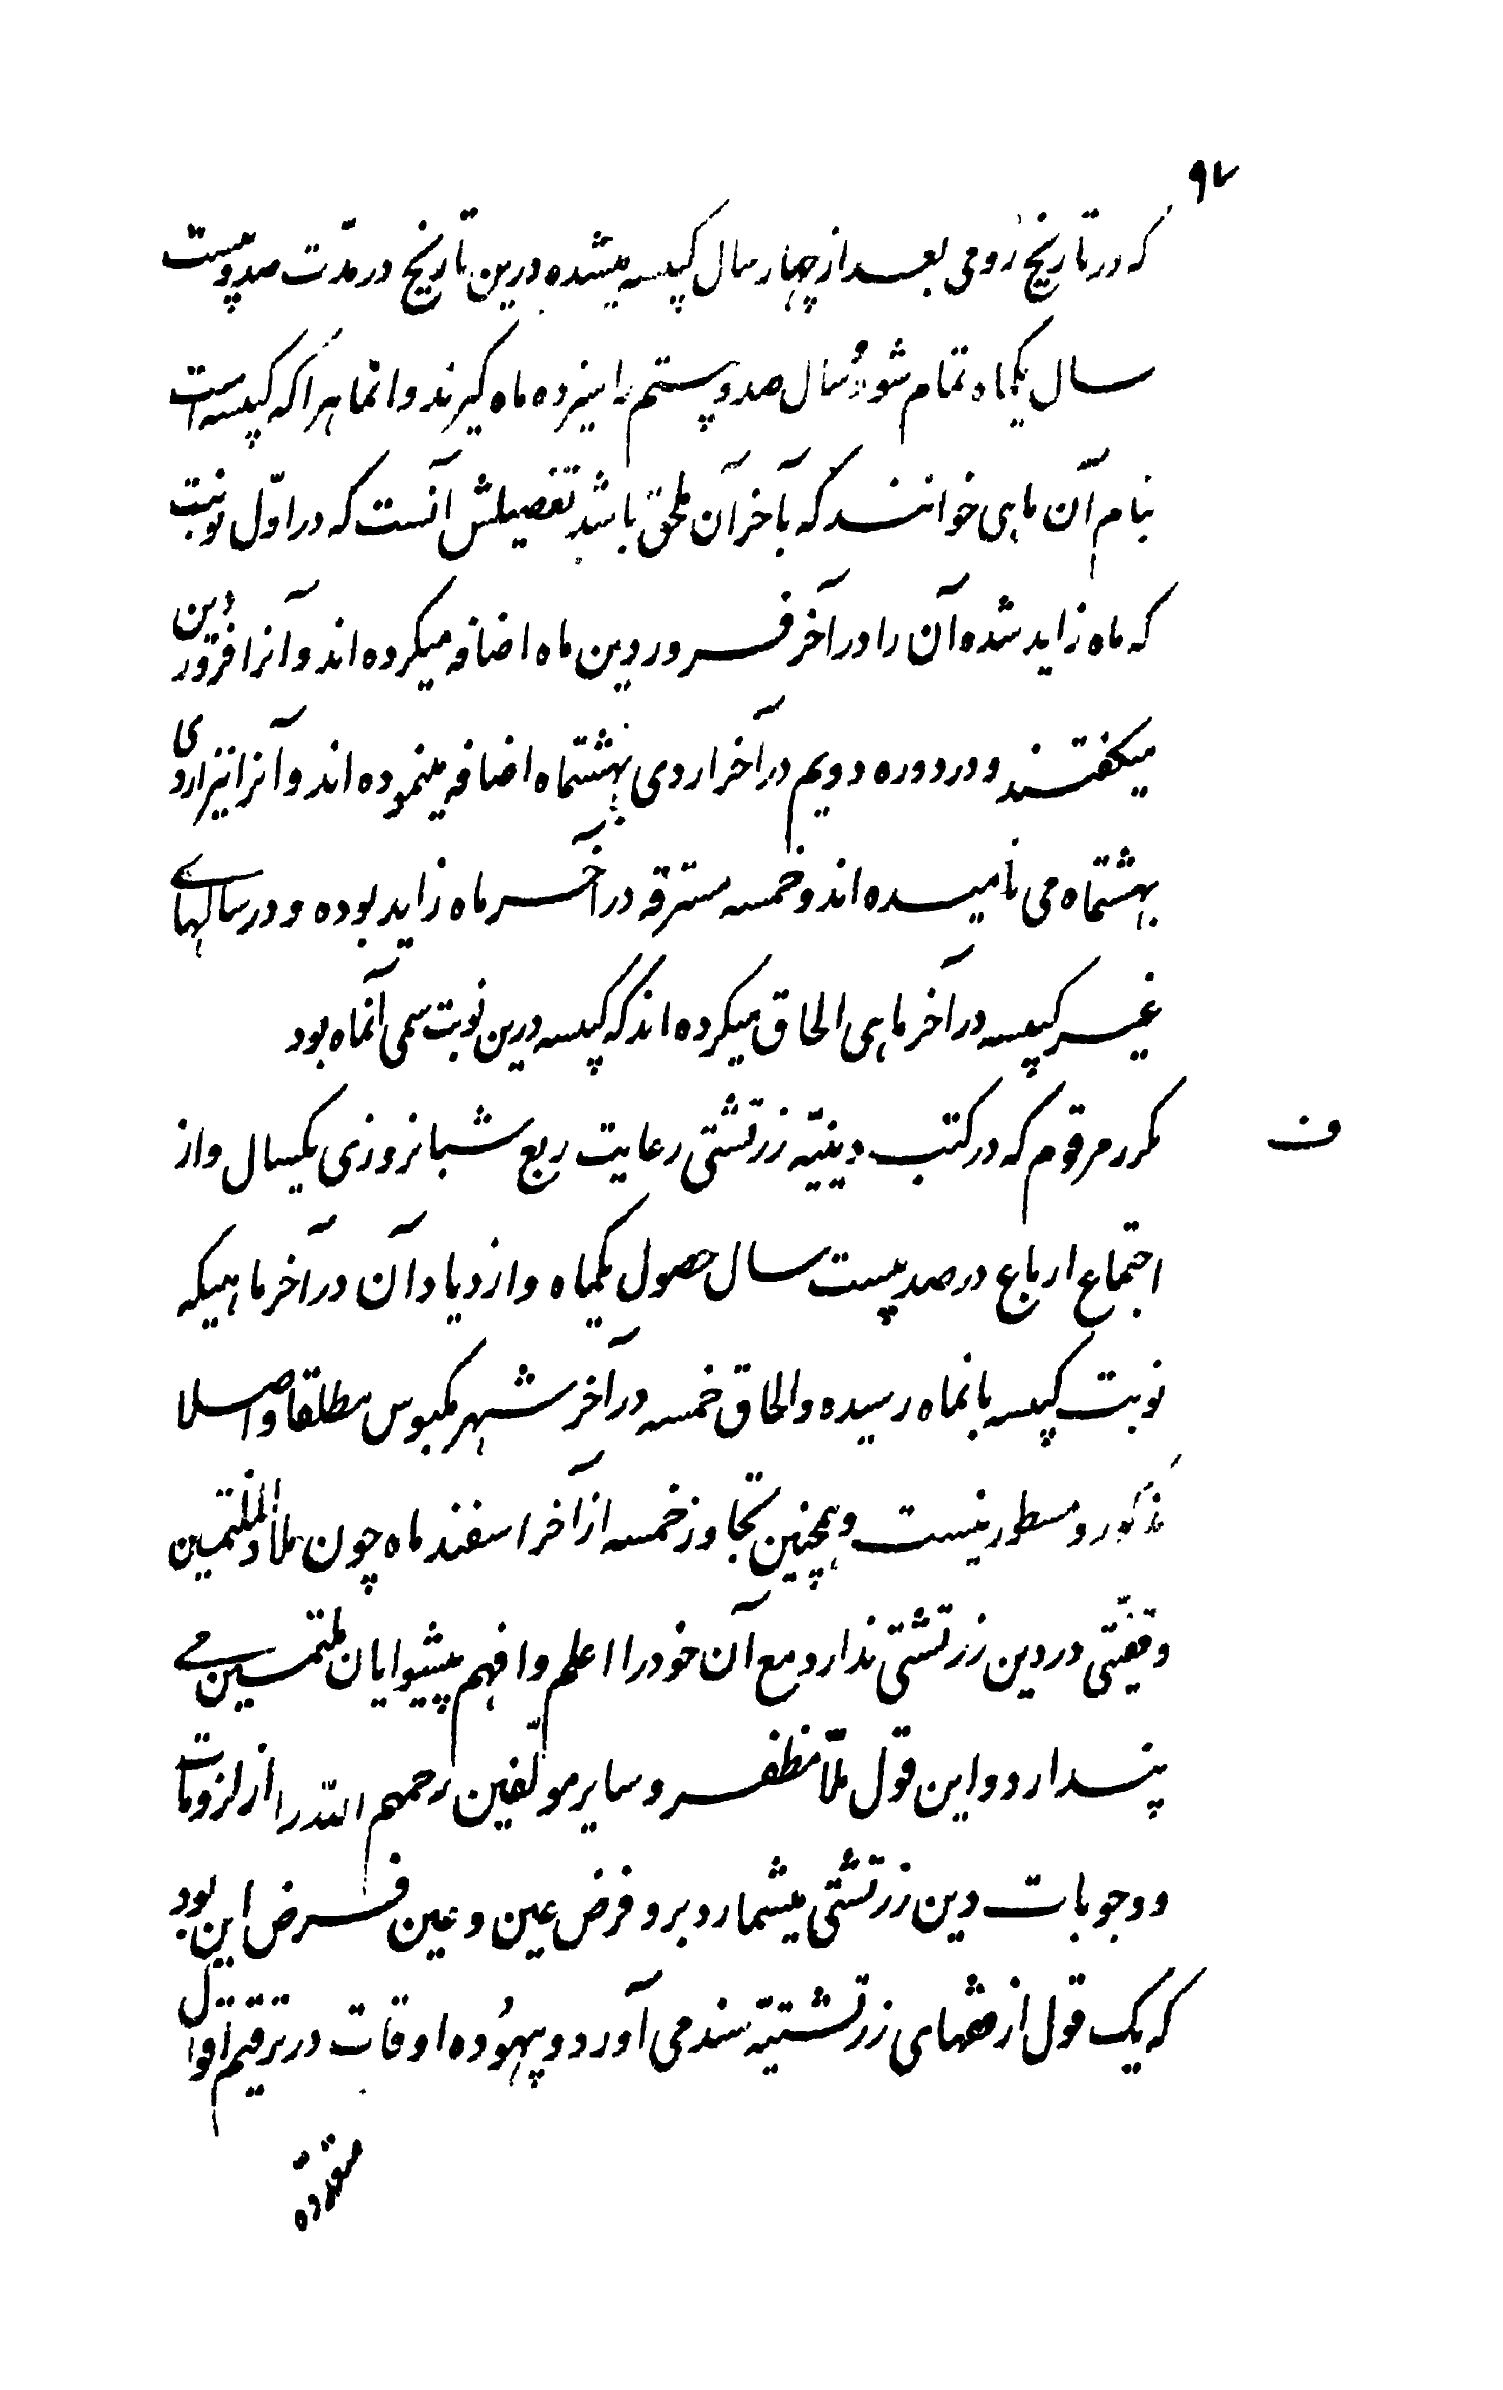 ۹۲
که در تاریخ رومی بعد از چهار سال کپیسه میشده درین تاریخ در مدّت صد و پیست
سال یکماه تمام شود و سال صد و پیستم را سیزده ماه گیرند و انماهرا که کپیسه است
بنام آن ماهی خوانند که بآخر آن ملحق باشد تفصیلش آنست که در اوّل نوبت
که ماه زاید شده آن را در آخر فروردین ماه اضافه میکرده اند و آنرا فروردین
میکفتند و در دوره دویم در آخر اردی بهشتماه اضافه مینموده اند و آنرا نیز اردی
بهشتماه می نامیده اند و خمسه مسترقه در آخر ماه زاید بوده و در سالهای
غیر کپیسه در آخر ماهی الحاق میکرده اند که کپیسه درین نوبت سمی آنماه بود
ف مکرر مرقوم که در کتب دینیّه زرتشتی رعایت ربع شبانروزی یکسال و از
اجتماع ارباع در صد پیست سال حصول یکماه و ازدیاد آن در آخر ماهیکه
نوبت کپیسه بانماه رسیده و الحاق خمسه در آخر شهر مکبوس مطلقا و اصلا
مذکور و مسطور نیست و همچنین تجاوز خمسه از آخر اسفند ماه چون ملاذ الملتمین
وقفیّتی در دین زرتشتی ندارد مع آن خود را اعلم و افهم پیشوایان ملتمسین می
پندارد و این قول ملّا مظفر و سایر مولّفین رحمهم الله را از لزومات
و وجوبات دین زرتشتی میشمارد برو فرض عین و عین فرض این بود
که یک قول از فقهای زرتشتیّه سند می آورد و پیهوده اوقات در ترقیم اقوال